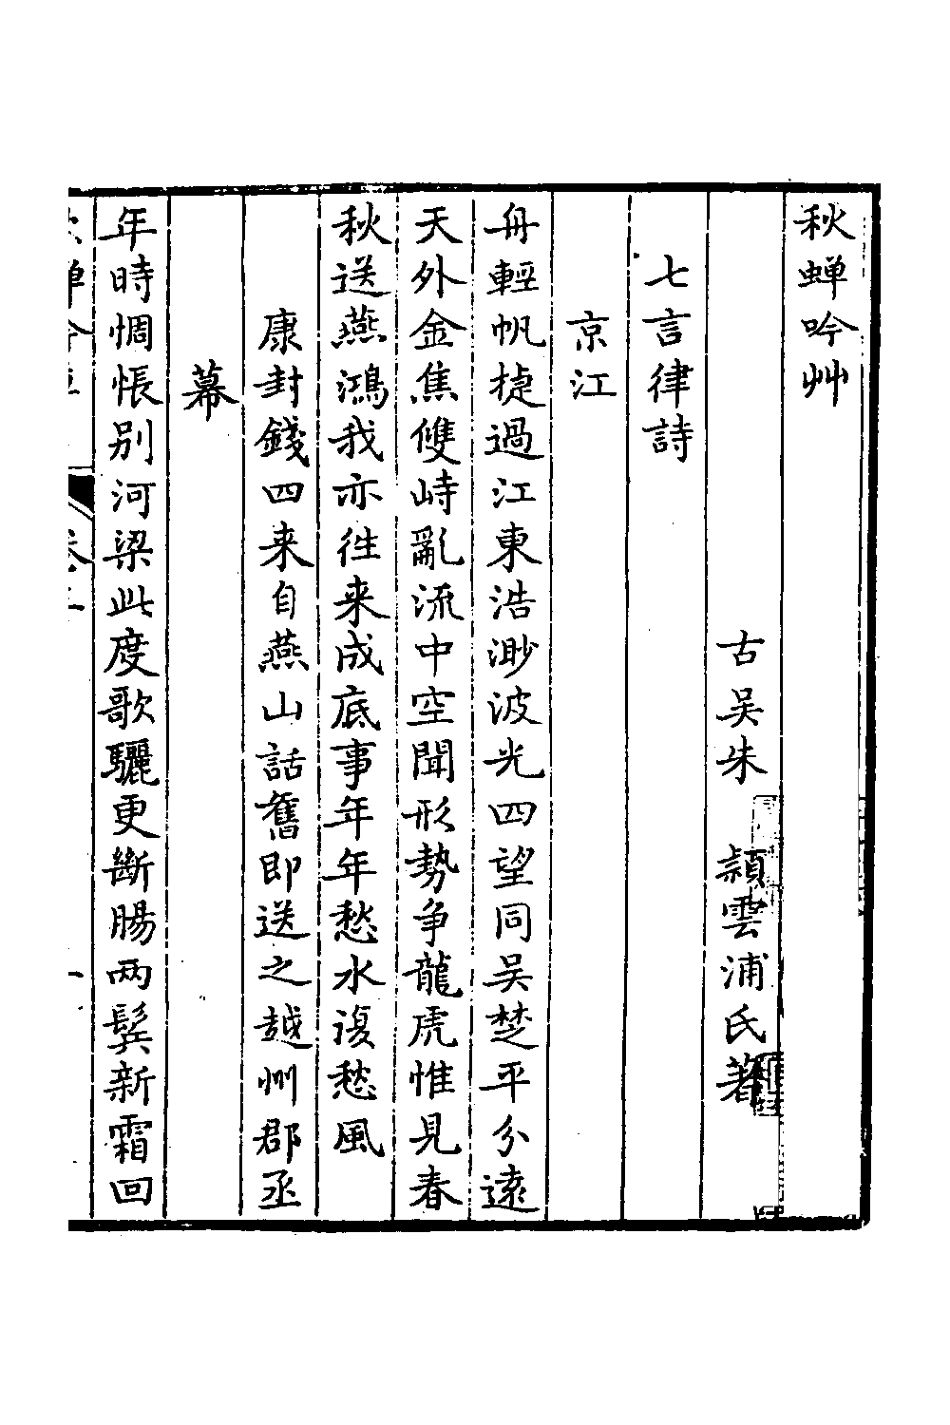 秋蟬吟艸
古吳朱 頴雲浦氏著
七言律詩
京江
舟輕帆捷過江東浩渺波光四望同吳楚平分遠
天外金焦雙峙亂流中空聞形勢争龍虎惟見春
秋送燕鴻我亦徃来成底事年年愁水復愁風
康封錢四来自燕山話舊即送之越州郡丞
幕
年時惆悵别河梁此度歌驪更斷腸两鬂新霜回